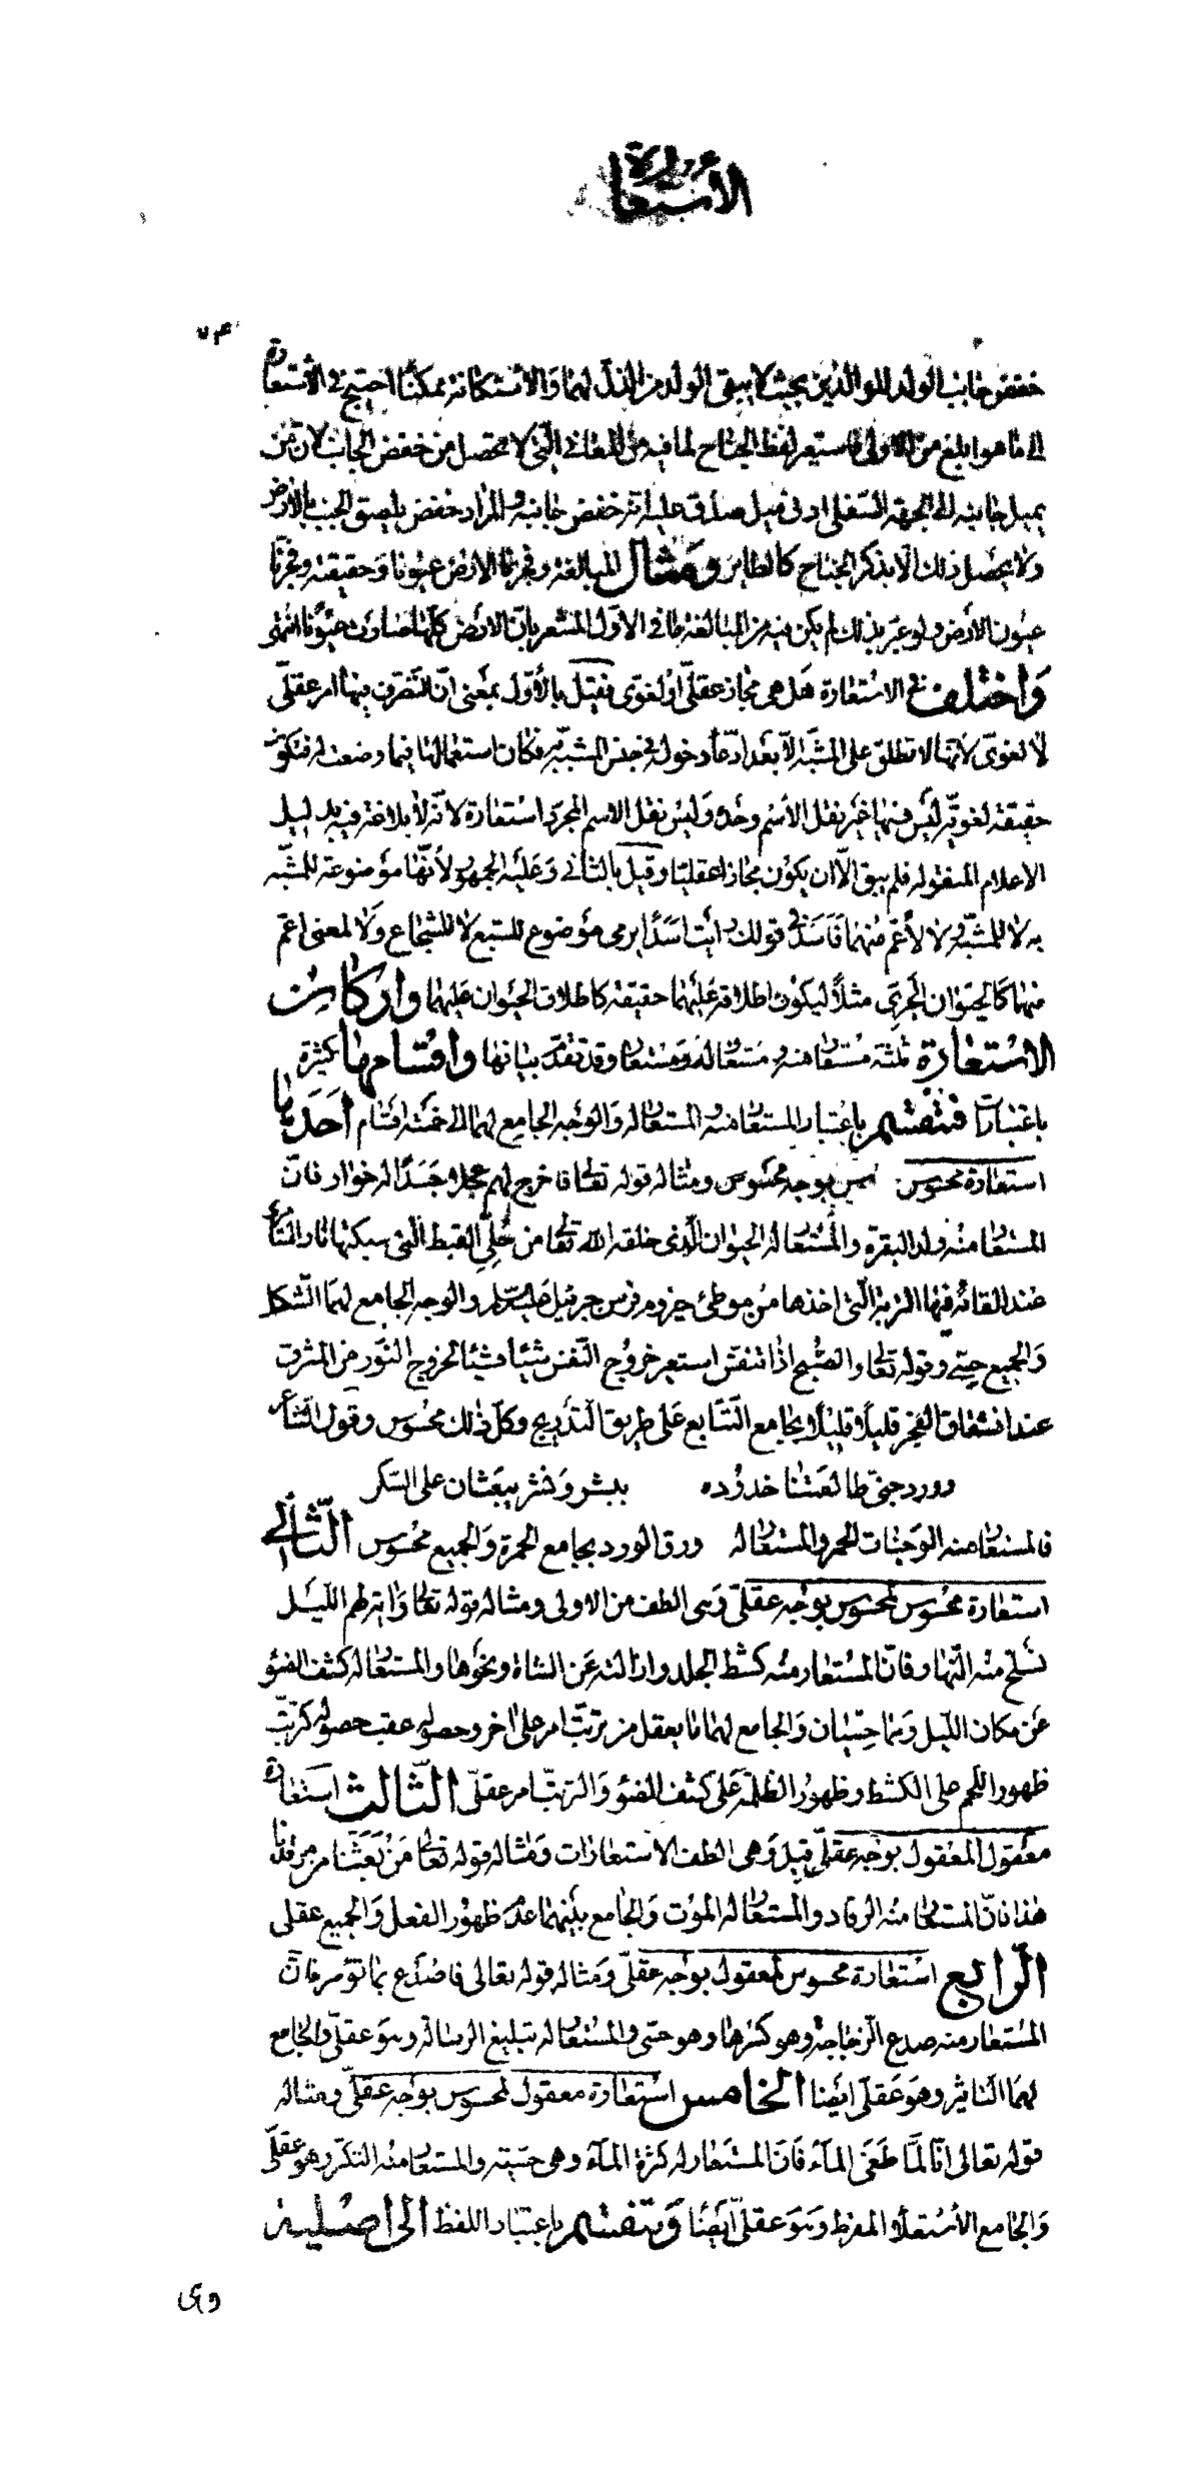 الأستعارة
٧٣
خفض جانب الولد للوالدين بحيث لا يبقى الولد من الذل لهما والأستكانة ممكنا احتيج فى الأستعارة
الى ما هو ابلغ من الاولى فاستعير لفظ الجناح لما فيه من المعانى التى لا تحصل من خفض الجانب لان من
يميل جانبه الى الجهة السفلى ادنى ميل صدق عليه انه خفض جانبه والمراد خفض يلصق الجنب بالأرض
ولا يحصل ذلك الا بذكر الجناح كالطائر ومثال المبالغة وفجرنا الارض عيونا وحقيقته وفجرنا
عيون الأرض ولو عبر بذلك لم يكن فيه من المبالغة ما فى الاول المشعر بان الارض كلها صارت عيونا انتهى
واختلف فى الاستعارة هل هى مجاز عقلى او لغوى فقيل بالأول بمعنى ان التصرف فيها امر عقلى
لا لغوى لانها لا تطلق على المشبه الا بعد ادعاء دخوله فى جنس المشبه به فكان استعمالها فيما وضعت له فتكون
حقيقة لغوية ليس فيها غير نقل الأسم وحده وليس نقل الاسم المجرد استعارة لانه لا بلاغة فيه بدليل
الاعلام المنقولة فلم يبق الا ان يكون مجازا عقليا وقيل بالثانى وعليه الجمهور لأنها موضوعة للمشبه
به لا للمشبه ولا لأعم منهما فأسد فى قولك رأيت اسدا يرمى موضوع للسبع لا للشجاع ولا لمعنى اعم
منهما كالحيوان الجرى مثلا ليكون اطلاقه عليهما حقيقة كاطلاق الحيوان عليهما واركان
الاستعارة ثلثة مستعار منه ومستعار له ومستعار وقد تقدم بيانها واقسامها كثيرة
باعتبارات فتنقسم باعتبار المستعار منه والمستعار له والوجه الجامع لهما الى خمسة اقسام احدها
استعارة محسوس لمحسوس بوجه محسوس ومثاله قوله تعالى فاخرج لهم عجلا جسدا له خوار فان
المستعار منه ولد البقرة والمستعار له الحيوان الذى خلقه الله تعالى من حلى القبط التى سبكتها نار السامرى
عند القائه فيها التربة التى اخذها من موطئ حيزوم فرس جبرئيل عليه السلام والوجه الجامع لهما الشكل
والجميع حسى وقوله تعالى والصبح اذا تنفس استعير خروج النفس شيئا فشيئا لخروج النور من المشرق
عند انشقاق الفجر قليلا قليلا بجامع التتابع على طريق التدريج وكل ذلك محسوس وقول الشاعر
وورد جنى طالعتنا خدوده ببشر ونشر يبعثان على السكر
فالمستعار منه الوجنات الحمر والمستعار له ورق الورد بجامع الحمرة والجميع محسوس الثانى
استعارة محسوس لمحسوس بوجه عقلى وهى الطف من الاولى ومثاله قوله تعالى وآية لهم الليل
نسلخ منه النهار فان المستعار منه كشط الجلد وازالته عن الشاة ونحوها والمستعار له كشف الضوء
عن مكان الليل وهما حسيان والجامع لهما ما يعقل من ترتب امر على اخر وحصوله عقب حصوله كترتب
ظهور اللحم على الكشط وظهور الظلمة على كشف الضوء والترتب امر عقلى الثالث استعارة
معقول لمعقول بوجه عقلى قيل وهى الطف الاستعارات ومثاله قوله تعالى من بعثنا من مرقدنا
هذا فان المستعار منه الرقاد والمستعار له الموت والجامع بينهما عدم ظهور الفعل والجميع عقلى
الرابع استعارة محسوس لمعقول بوجه عقلى ومثاله قوله تعالى فاصدع بما تؤمر فان
المستعار منه صدع الزجاجة وهو كسرها وهو حسى والمستعار له تبليغ الرسالة وهو عقلى والجامع
لهما التاثير وهو عقلى ايضا الخامس استعارة معقول لمحسوس بوجه عقلى ومثاله
قوله تعالى انا لما طغى الماء فان المستعار له كثرة الماء وهى حسية والمستعار منه التكبر وهو عقلى
والجامع الأستعلاء المفرط وهو عقلى ايضا وتنقسم باعتبار اللفظ الى اصلية
وهى